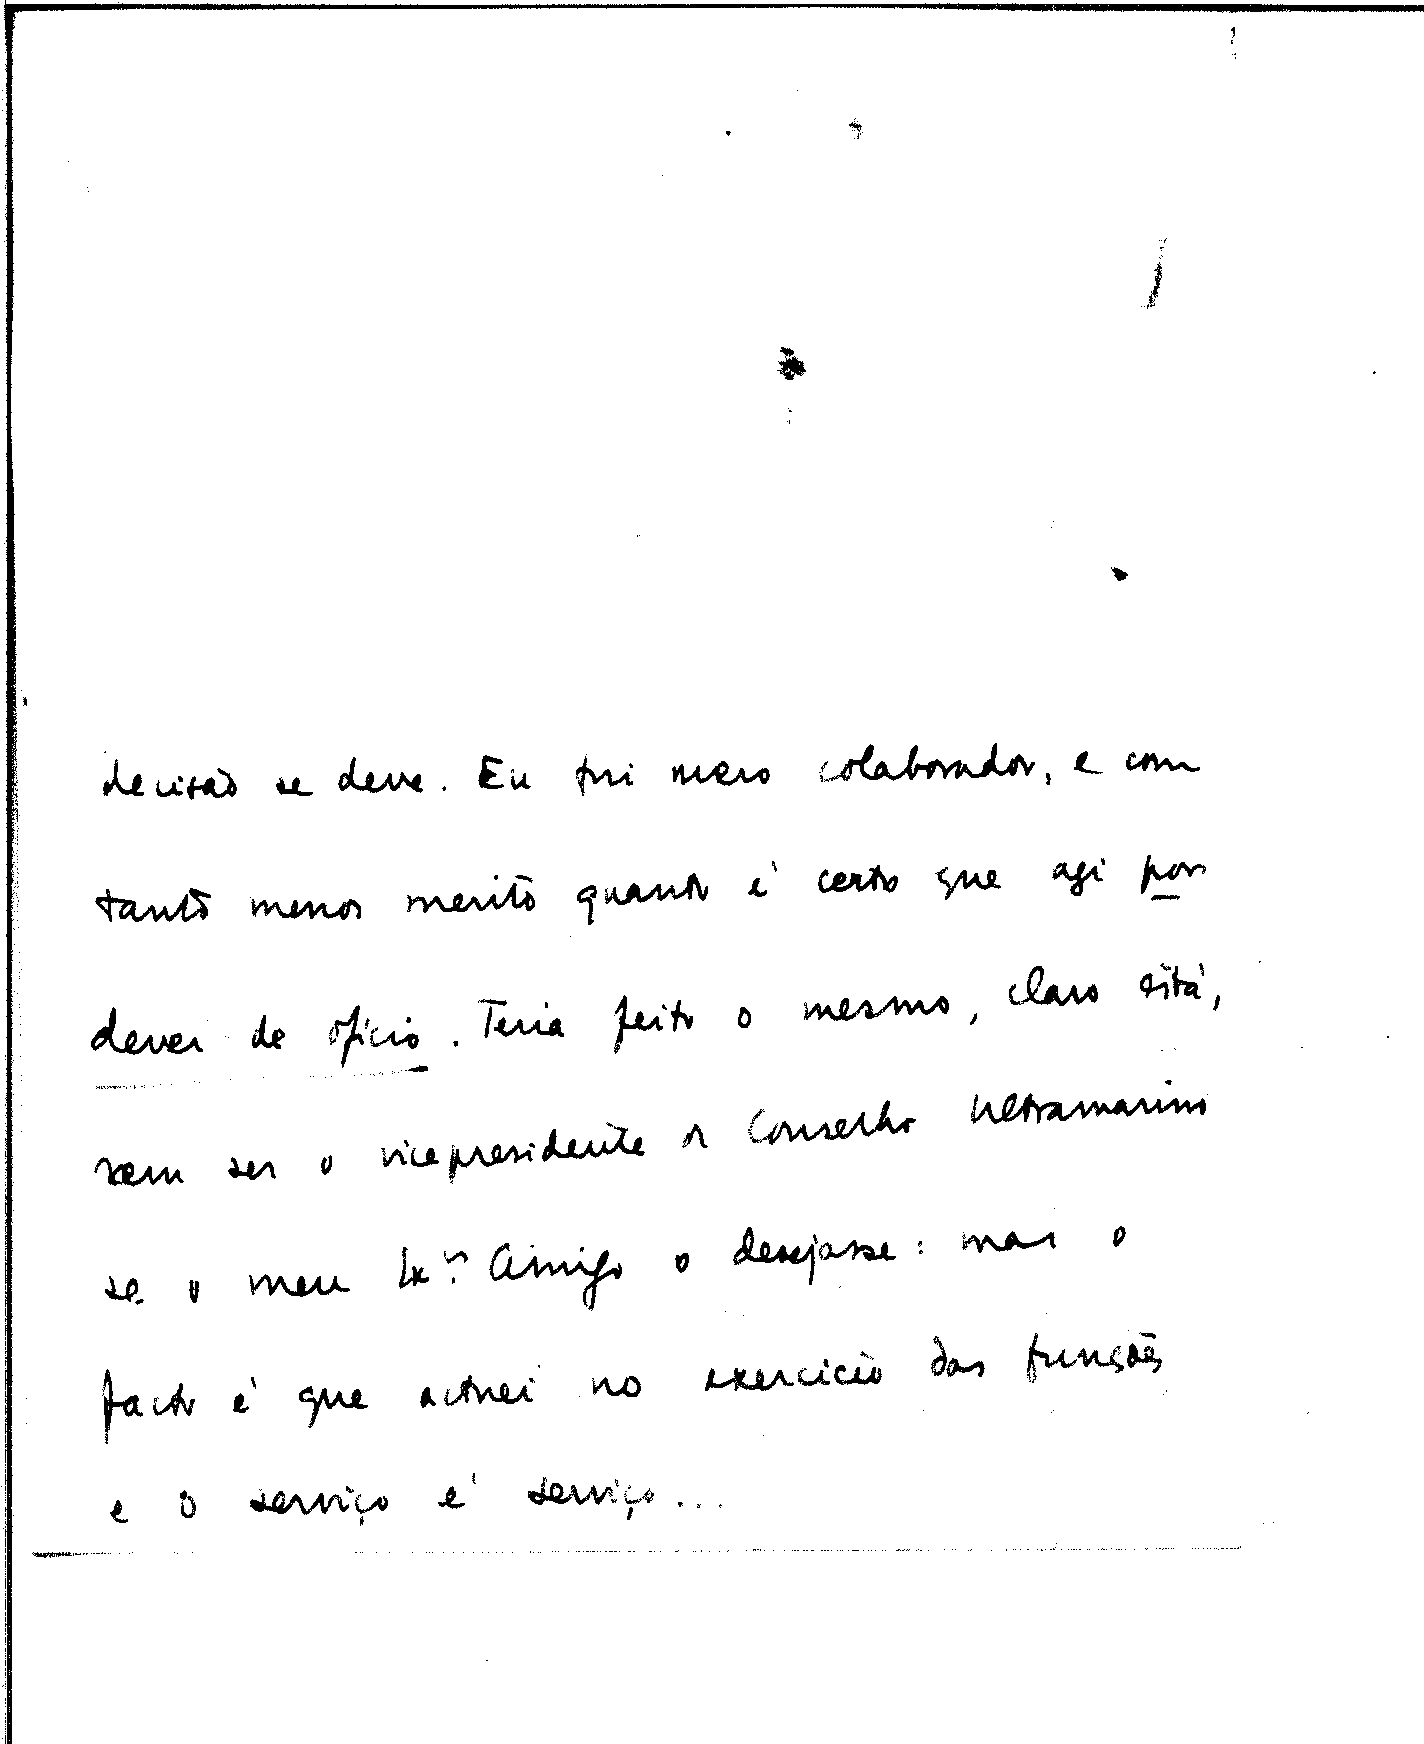 decisão se deve. Eu fui mero colaborador, e com
tanto menos merito quanto é certo que agi por
dever de ofício. Teria feito o mesmo, claro está,
sem ser o vicepresidente do Conselho Ultramarino
se o meu Exº. Amigo o desejasse: mas o
facto é que actuei no exercicio das funções
e o serviço é serviço...